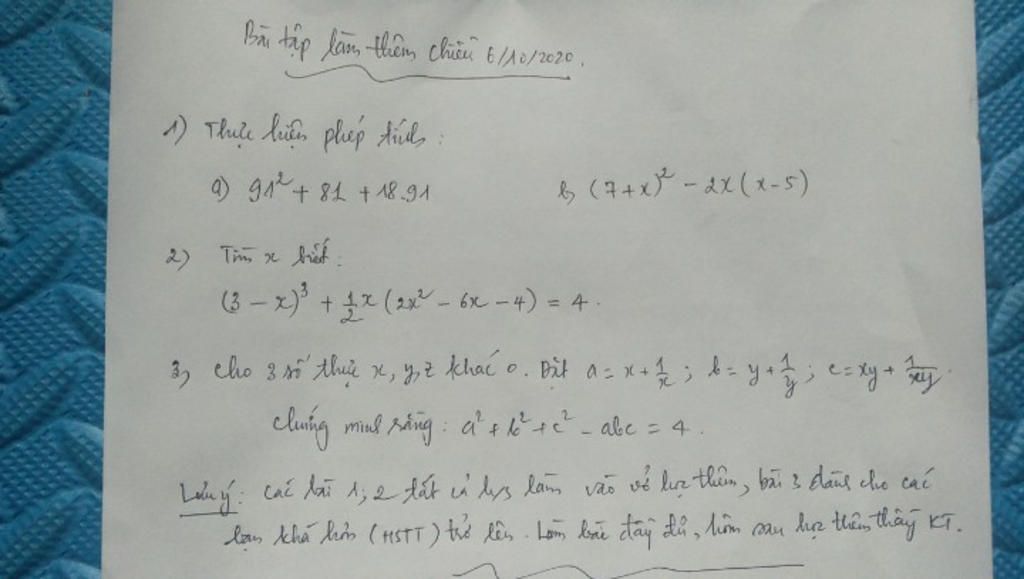 Bài tập làm thêm chiều 6/10/2020.
1) Thực hiện phép tính:
a) 91² + 81 + 18.91 b, (7+x)² - 2x(x-5)
2) Tìm x biết:
(3 - x)³ + 1/2 x (2x² - 6x - 4) = 4.
3, Cho 3 số thực x, y, z khác 0. Đặt a = x + 1/x; b = y + 1/y; c = xy + 1/xy.
Chứng minh rằng: a² + b² + c² - abc = 4.
Lưu ý: Các bài 1; 2 tất cả hs làm vào vở học thêm, bài 3 dành cho các
bạn khá hơn (HSTT) trở lên. Làm bài đầy đủ, hôm sau học thêm thầy KT.